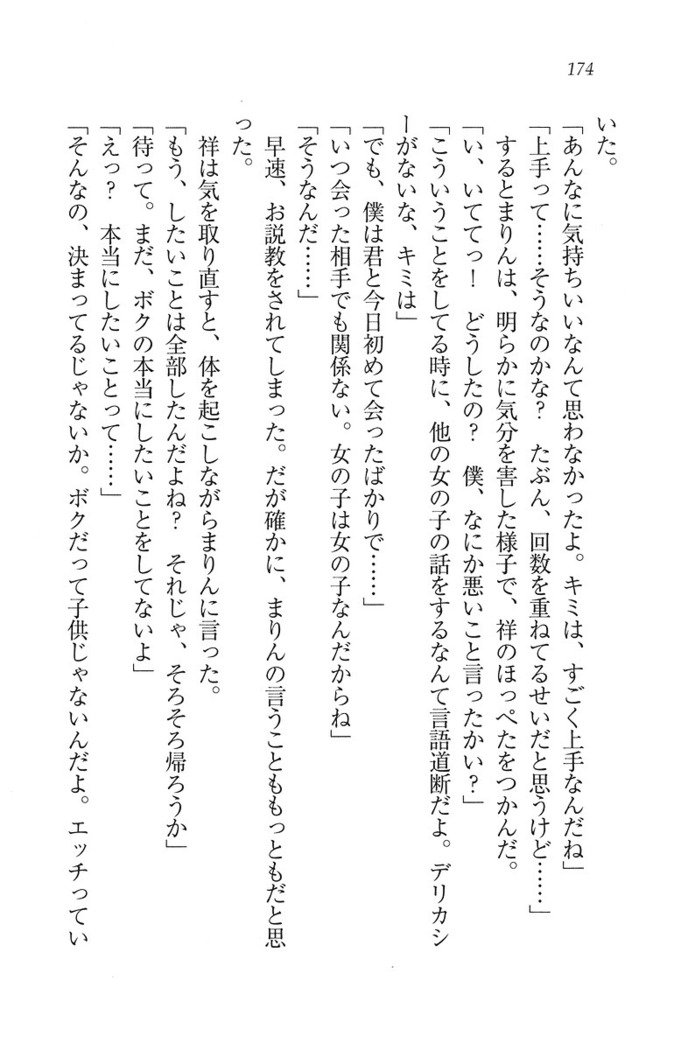 174
いた。
「あんなに気持ちいいなんて思わなかったよ。キミは、すごく上手なんだね」
「上手って……そうなのかな？　たぶん、回数を重ねてるせいだと思うけど……」
　するとまりんは、明らかに気分を害した様子で、祥のほっぺたをつかんだ。
「い、いててっ！　どうしたの？　僕、なにか悪いこと言ったかい？」
「こういうことをしてる時に、他の女の子の話をするなんて言語道断だよ。デリカシ
ーがないな、キミは」
「でも、僕は君と今日初めて会ったばかりで……」
「いつ会った相手でも関係ない。女の子は女の子なんだからね」
「そうなんだ……」
　早速、お説教をされてしまった。だが確かに、まりんの言うことももっともだと思
った。
　祥は気を取り直すと、体を起こしながらまりんに言った。
「もう、したいことは全部したんだよね？　それじゃ、そろそろ帰ろうか」
「待って。まだ、ボクの本当にしたいことをしてないよ」
「えっ？　本当にしたいことって……」
「そんなの、決まってるじゃないか。ボクだって子供じゃないんだよ。エッチってい